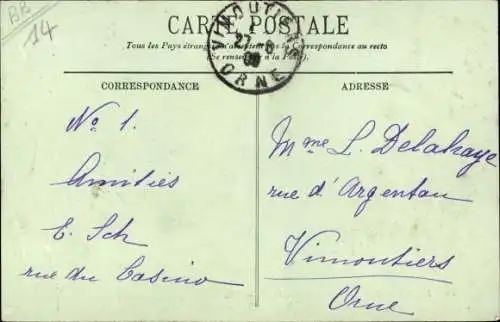 BR
14
CARTE POSTALE
Tous les Pays étrangers n'acceptent pas la Correspondance au recto
(Se renseigner à la Poste).
VIMOUTIERS
27 - 6
08
ORNE
CORRESPONDANCE
ADRESSE
No 1.
Amitiés
E. Sch
rue du Casino
Mme L. Delahaye
rue d'Argentan
Vimoutiers
Orne